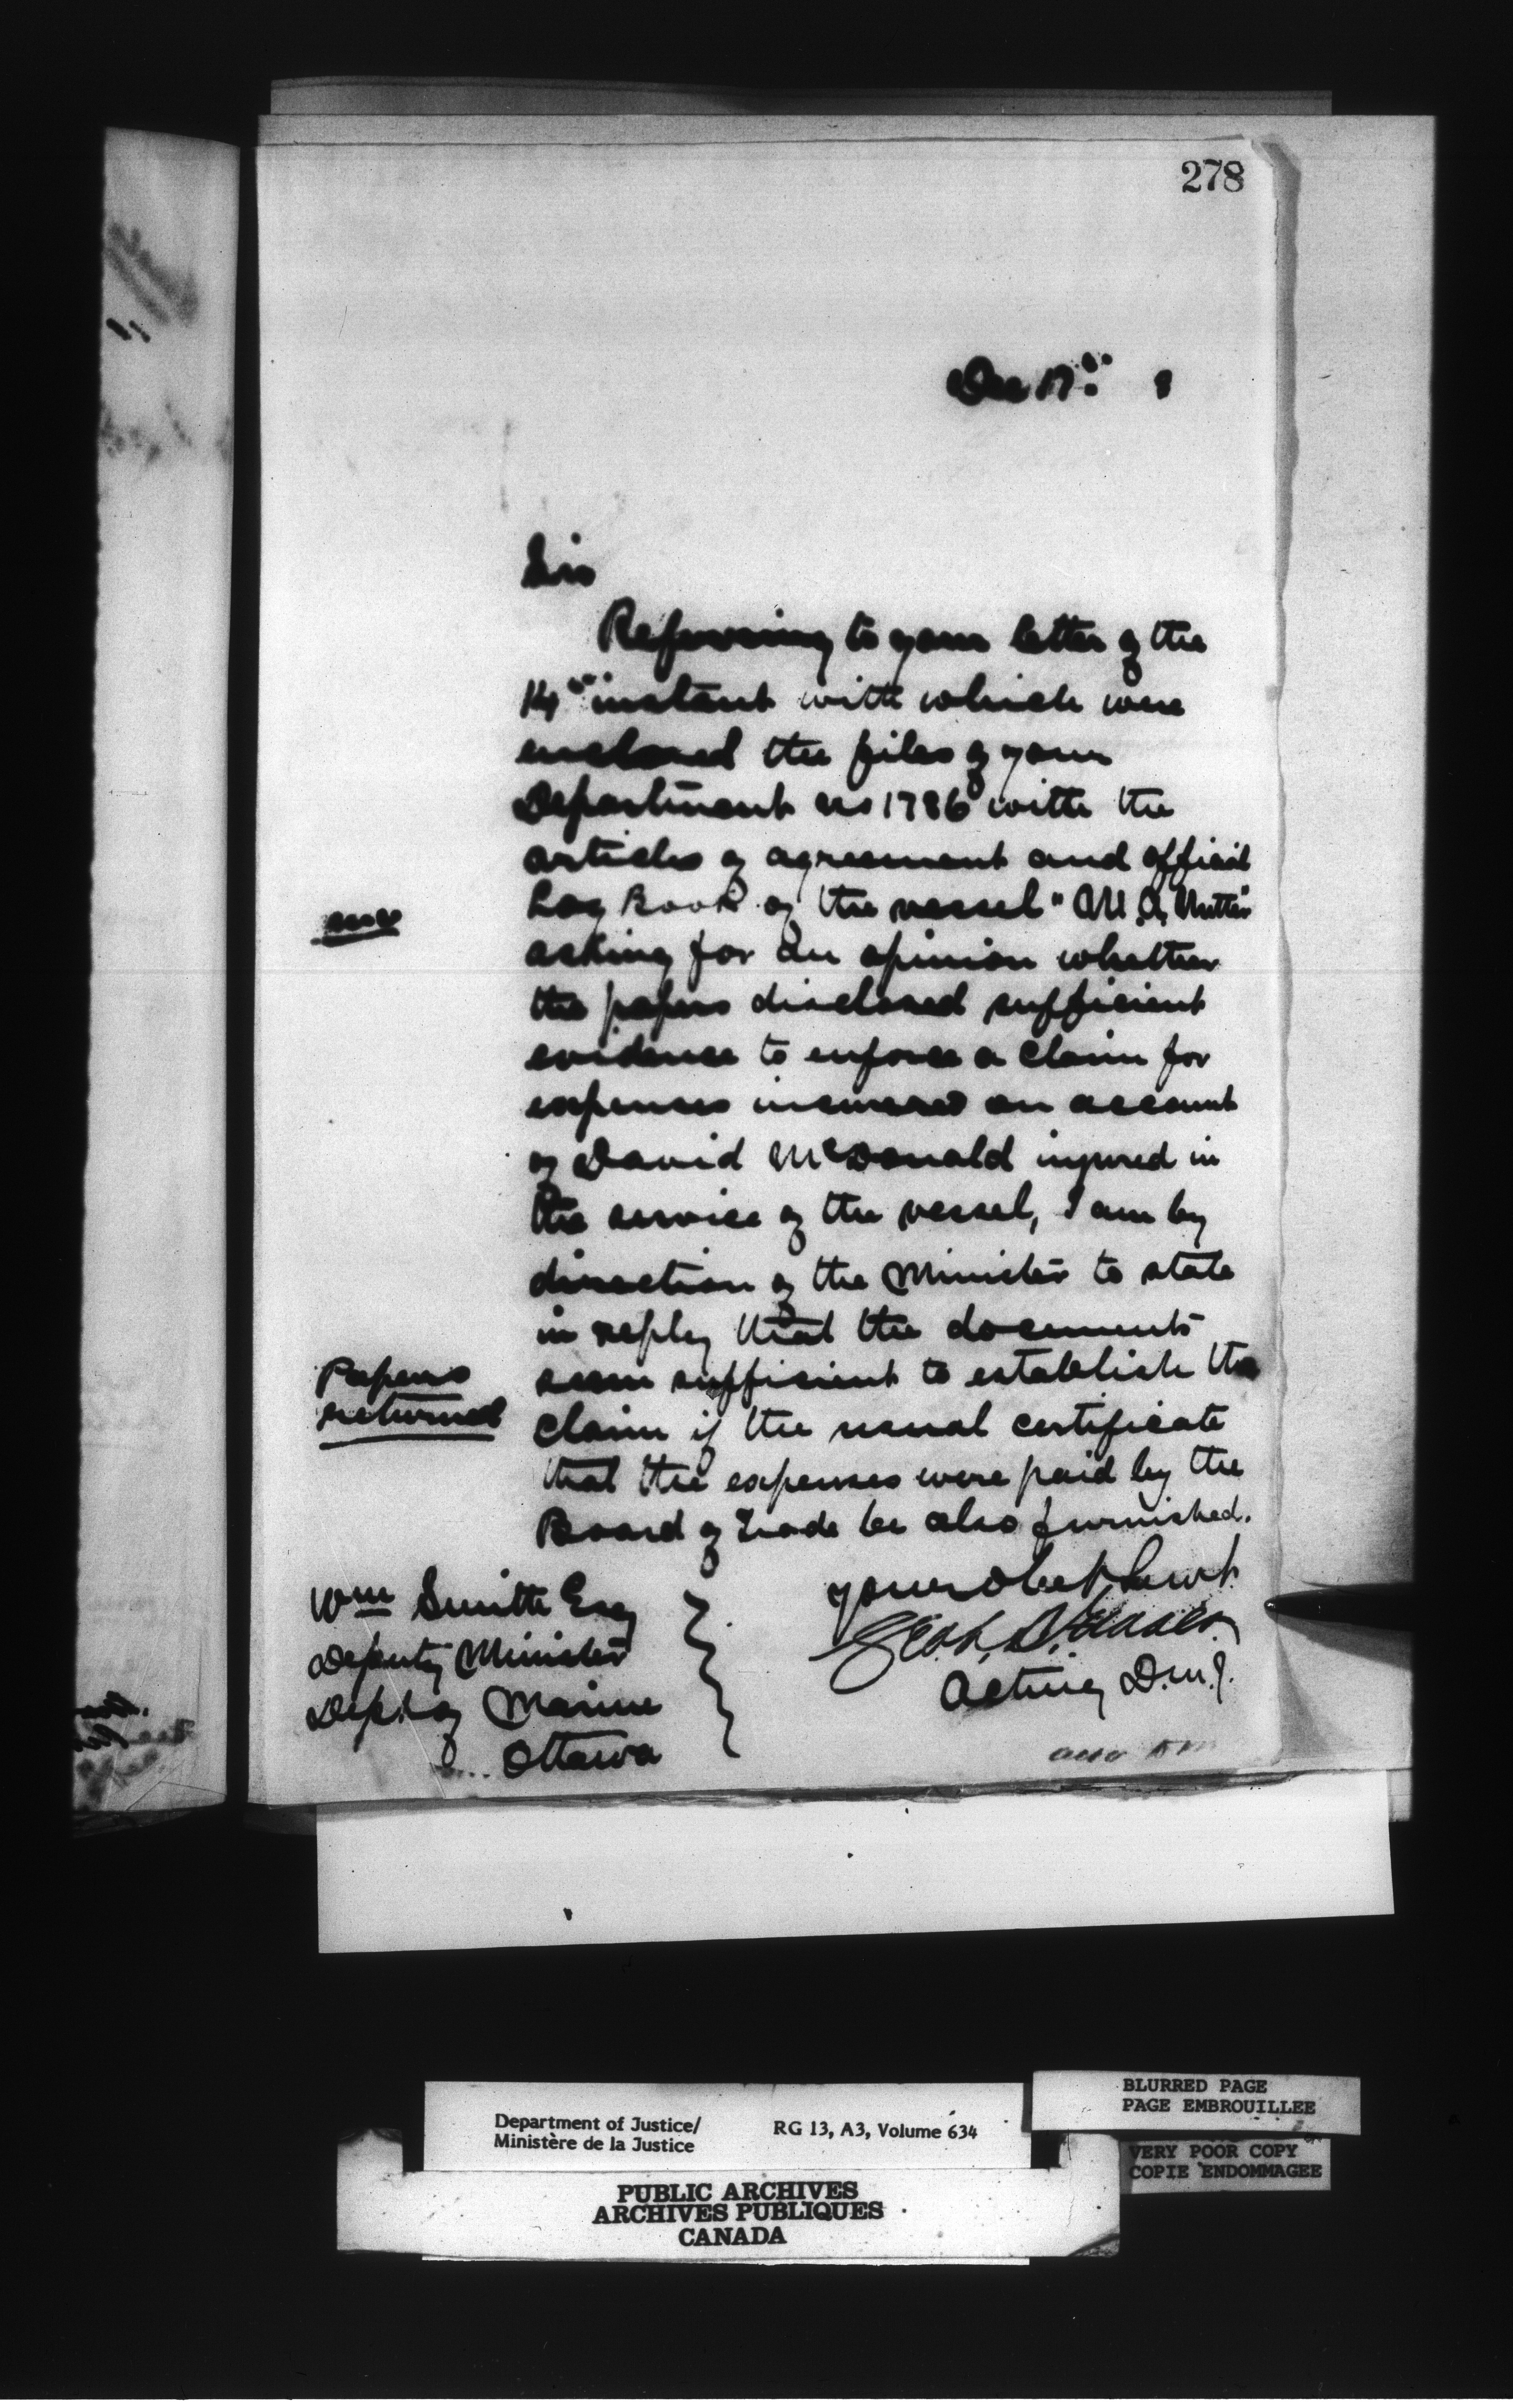 278
Dec 17th 8
Sir
Referring to your letter of the
14th instant with which were
enclosed the files of your
Department no 1786 with the
articles of agreement and official
Log Book of the vessel "M. A. Nutter"
asking for an opinion whether
the papers disclosed sufficient
evidence to enforce a claim for
expenses incurred on account
of David McDonald injured in
the service of the vessel, I am by
direction of the Minister to state
in reply that the documents
Papers
returned
seem sufficient to establish the
claim if the usual certificate
that the expenses were paid by the
Board of Trade be also furnished.
your obet servt
Acting D.M.J.
Wm Smith Esq
Deputy Minister
Dept of Marine
Ottawa
Department of Justice/
Ministère de la Justice
RG 13, A3, Volume 634
BLURRED PAGE
PAGE EMBROUILLEE
VERY POOR COPY
COPIE ENDOMMAGEE
PUBLIC ARCHIVES
ARCHIVES PUBLIQUES
CANADA